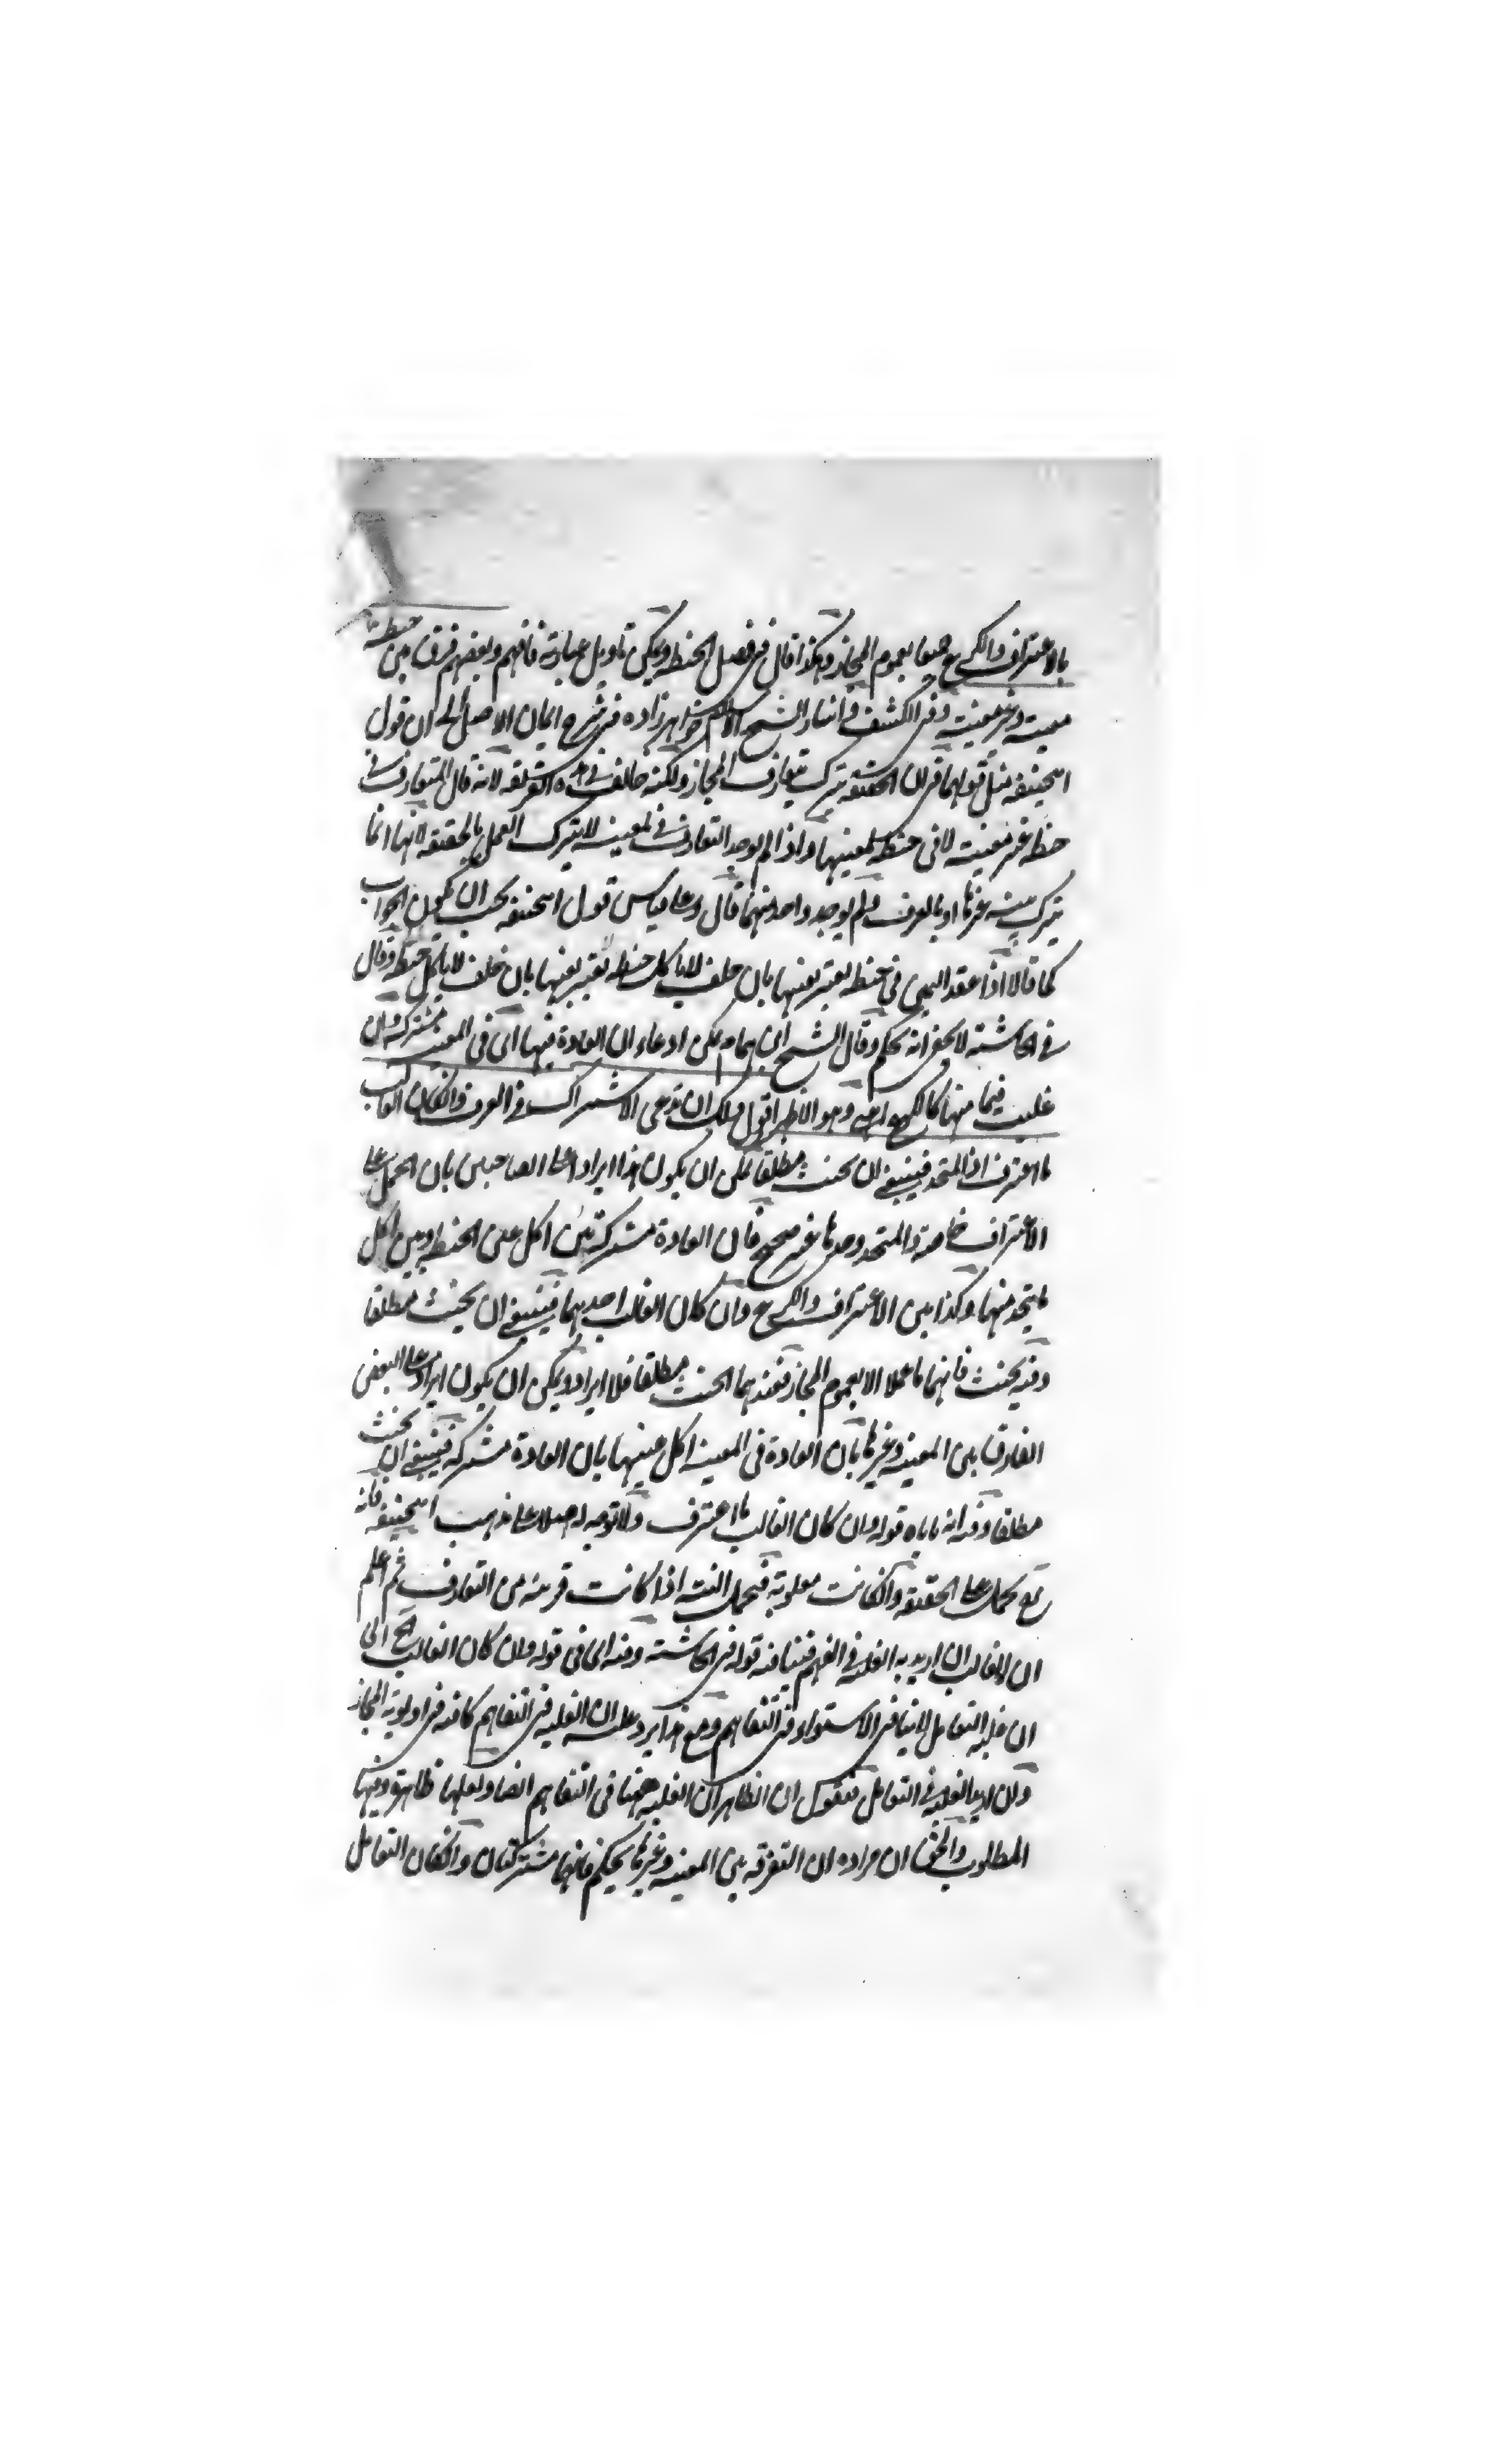 بالاعتراف والكرع جميعا بعموم المجاز وهكذا قال في فصل الحنطة ويمكن تاويل عبارته فافهم وبعضهم فرق بين حنطة
معينة وغير معينة وفي الكشف واشار الشيخ الاسلام خواهر زاده في شرح ايمان الاصل الى ان قول
ابيحنيفه مثل قولهما في ان الحقيقه يترك بتعارف المجاز ولكنه خالف في هذه لانه قال المتعارف في
حنطة غير معينة لا في حنطة بعينها واذا لم يوجد التعارف في المعينه لا يترك العمل بالحقيقه لانها انما
يترك بنية غيرها او بالعرف ولم يوجد واحد منهما قال وعلى قياس قول ابيحنيفه يجب ان يكون الجواب
كما قالا اذا عقد اليمين في حنطة بغير بعينها بان حلف لا ياكل حنطة وقال
في الحاشية لا يخفى انه تحكم وقال الشيخ ابن همام يمكن ادعاء ان العادة فيها اي في المعينه مشتركه وان
غلبت فيما منها كالكرع وهو الاظهر اقول ولك ان تدعي الاشتراك في العرف وانكان الغالب
ما اعترف اذا المتخذ فينبغي ان يحنث مطلقا يمكن ان يكون هذا ايرادا على الصاحبين بان الحمل على
الاعتراف خاصة والمتخذ وحدها غير صحيح فان العادة مشتركة بين اكل عين الحنطه وبين اكل
ما يتخذ منها وكذا بين الاعتراف والكرع وان كان الغالب احدهما فينبغي ان يحنث مطلقا
وفيه بحث فانهما ما عملا الا بعموم المجاز فعندهما الحنث مطلقا فلا ايراد ويمكن ان يكون ايرادا على البعض
الفارق بين المعينه وغيرها بان العادة في المعينه اكل عينها بان العادة مشتركه فينبغي ان يحنث
مطلقا وفيه انه ياباه قوله وان كان الغالب ما اعترف ولا توجه له اصلا على مذهب ابيحنيفه فانه
يحمل على الحقيقه وانكانت مغلوبة فيحمل البتة اذا كانت قرينه من التعارف ثم اعلم
ان الغالب ان اريد به الغلبه في الفهم فينافيه قوله في الحاشية وفيه اي في قوله وان كان الغالب الخ الى
ان غلبة التعامل لا ينافي الاستواء في التفاهم ومع هذا يرد عليه ان الغلبه في التفاهم كافيه في اولوية المجاز
وان اريد الغلبه في التعامل فنقول ان الظاهر ان الغلبه ههنا في التفاهم ايضا ولعلها ظاهرة وفيها
المطلوب والحق ان مراده ان التفرقه بين المعينه وغيرها تحكم فانهما مشتركتان وانكان التعامل